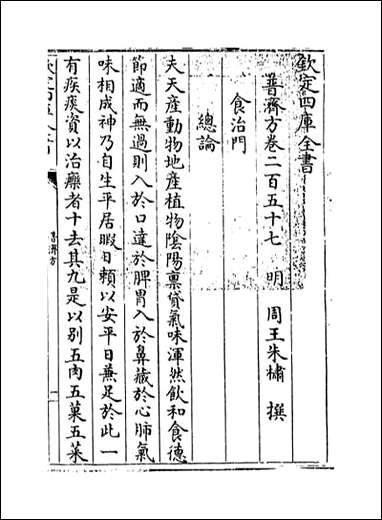 欽定四庫全書
普濟方卷二百五十七 明 周王朱橚 撰
食治門
總論
夫天產動物地產植物陰陽稟貸氣味渾然飲和食德
節適而無過則入於口達於脾胃入於鼻藏於心肺氣
味相成神乃自生平居暇日賴以安平日蕪足於此一
有疾疢資以治療者十去其九是以別五肉五菓五菜
普濟方
一